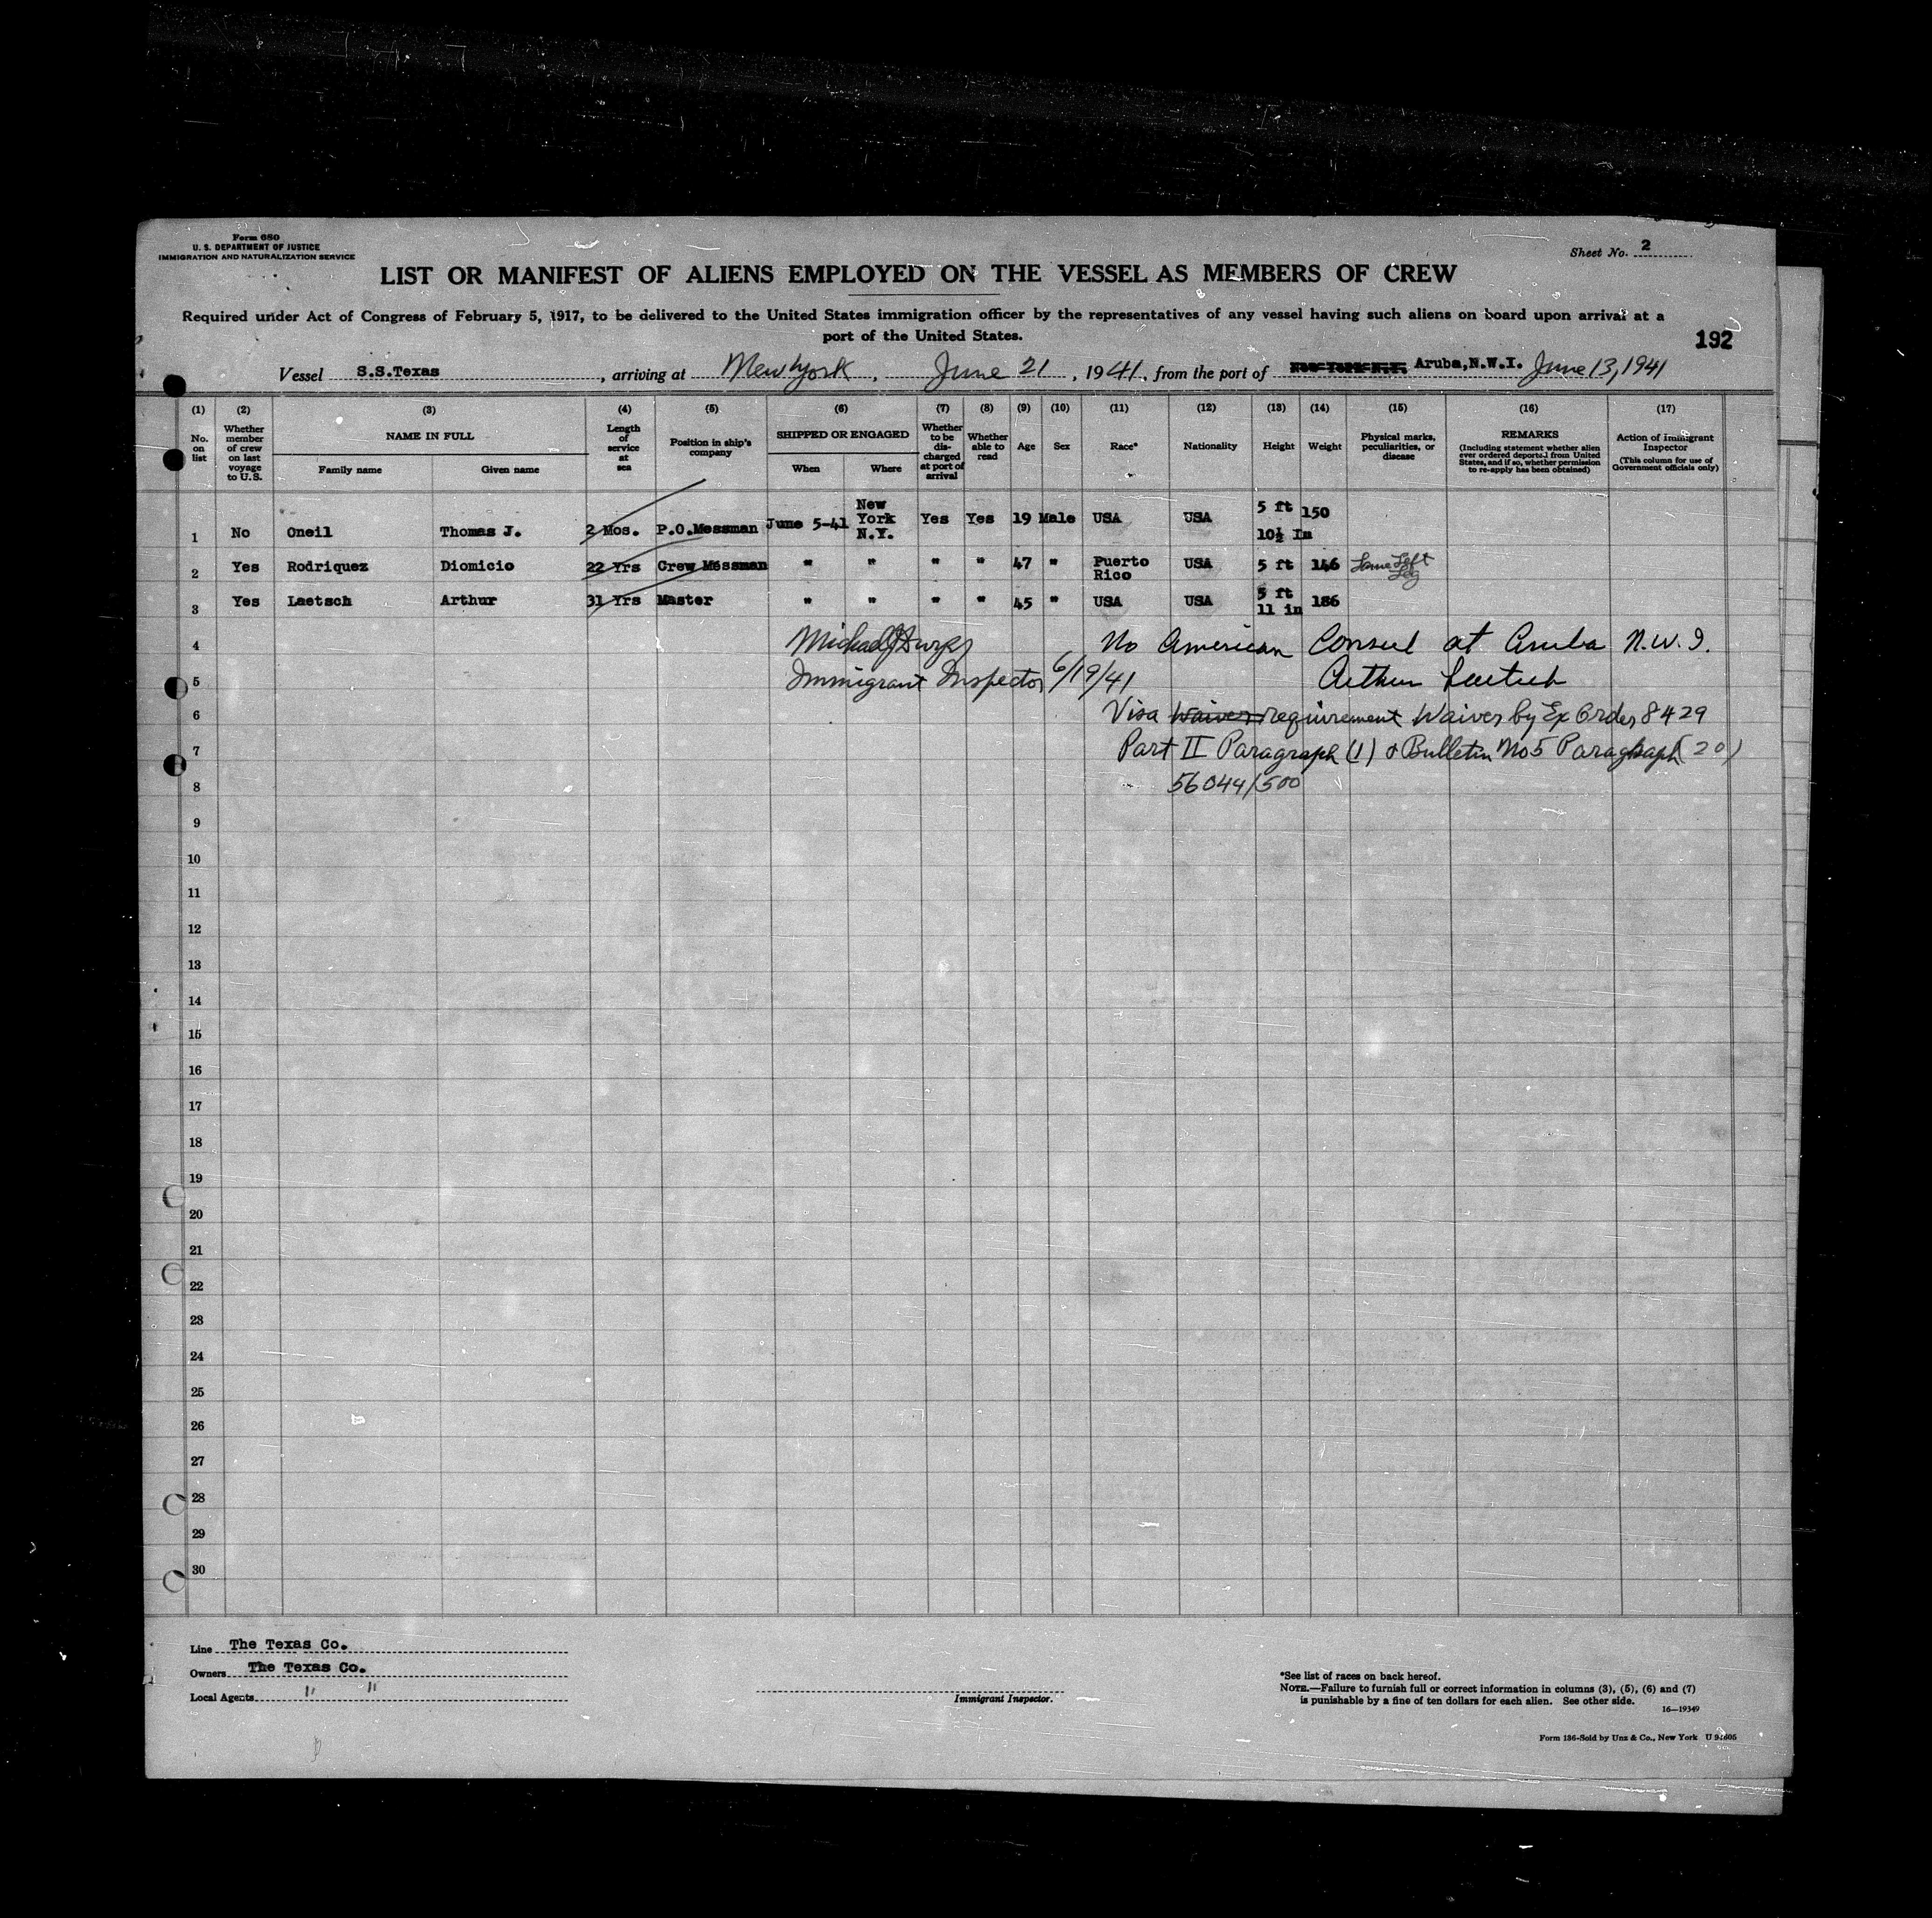 Form 680
U. S. DEPARTMENT OF JUSTICE
IMMIGRATION AND NATURALIZATION SERVICE
Sheet No. 2
LIST OR MANIFEST OF ALIENS EMPLOYED ON THE VESSEL AS MEMBERS OF CREW
Required under Act of Congress of February 5, 1917, to be delivered to the United States immigration officer by the representatives of any vessel having such aliens on board upon arrival at a
port of the United States.
192
Vessel S.S.Texas, arriving at New York, June 21, 1941, from the port of New York N.Y. Aruba,N.W.I. June 13, 1941
(1) (2) (3) (4) (5) (6) (7) (8) (9) (10) (11) (12) (13) (14) (15) (16) (17)
No. on list
Whether member of crew on last voyage to U.S.
NAME IN FULL
Family name Given name
Length of service at sea
Position in ship's company
SHIPPED OR ENGAGED
When Where
Whether to be discharged at port of arrival
Whether able to read
Age
Sex
Race*
Nationality
Height
Weight
Physical marks, peculiarities, or disease
REMARKS
(Including statement whether alien ever ordered deported from United States, and if so, whether permission to re-apply has been obtained)
Action of Immigrant Inspector
(This column for use of Government officials only)
1 No Oneil Thomas J. 2 Mos. P.O.Messman June 5-41 New York N.Y. Yes Yes 19 Male USA USA 5 ft 10½ In 150
2 Yes Rodriquez Diomicio 22 Yrs Crew Messman " " " " 47 " Puerto Rico USA 5 ft 146 Lame Left Leg
3 Yes Laetsch Arthur 31 Yrs Master " " " " 45 " USA USA 5 ft 11 in 186
4 Michael J No American Consul at Aruba N.W.I.
5 Immigrant Inspector 6/19/41 Arthur Laetsch
6 Visa Waiver requirement Waiver by Ex Order 8429
7 Part II Paragraph (1) & Bulletin No 5 Paragraph (20)
8 56044/500
9
10
11
12
13
14
15
16
17
18
19
20
21
22
23
24
25
26
27
28
29
30
Line The Texas Co.
Owners The Texas Co.
Local Agents " "
Immigrant Inspector.
*See list of races on back hereof.
NOTE.—Failure to furnish full or correct information in columns (3), (5), (6) and (7)
is punishable by a fine of ten dollars for each alien. See other side.
16—19349
Form 136-Sold by Unz & Co., New York